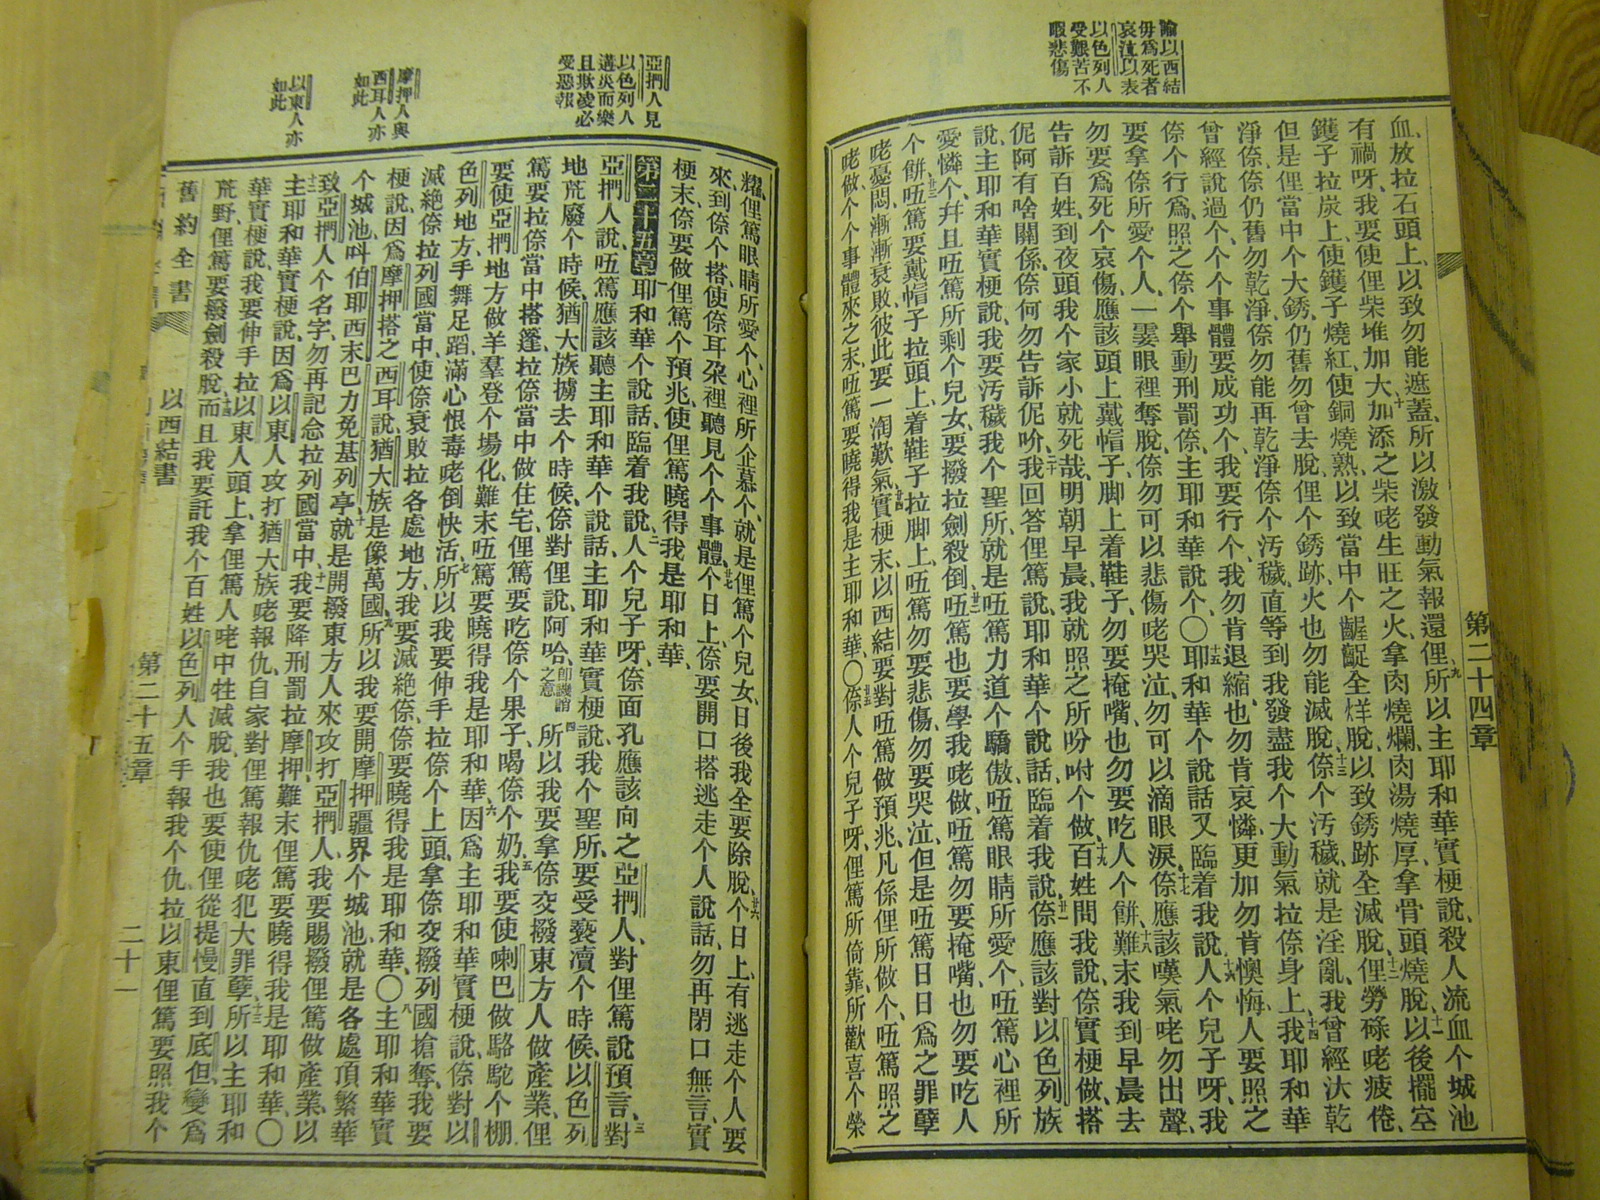 第二十四章
諭以西結
毋爲死者
哀泣以表
以色列人
受艱苦不
暇悲傷
血、放拉石頭上、以致勿能遮蓋、所以激發動氣報還俚、九所以主耶和華實梗說、殺人流血个城池
有禍呀、我要使俚柴堆加大、十加添之柴咾生旺之火、拿肉燒爛、肉湯燒厚、拿骨頭燒脫、十一以後擺空
鑊子拉炭上、使鑊子燒紅、使銅燒熟、以致當中个齷齪全烊脫、以致銹跡全滅脫、十二俚勞碌咾疲倦、
但是俚當中个大銹、仍舊勿曾去脫、俚个銹跡、火也勿能滅脫、十三倷个汚穢、就是淫亂、我曾經汏乾
淨倷、倷仍舊勿乾淨、倷勿能再乾淨倷个汚穢、直等到我發盡我个大動氣拉倷身上、十四我耶和華
曾經說過个、个个事體要成功个、我要行个、我勿肯退縮、也勿肯哀憐、更加勿肯懊悔、人要照之
倷个行爲、照之倷个舉動刑罰倷、主耶和華說个、〇十五耶和華个說話又臨着我說、十六人个兒子呀、我
要拿倷所愛个人、一霎眼裡奪脫、倷勿可以悲傷咾哭泣、勿可以滴眼淚、十七倷應該嘆氣咾勿出聲、
勿要爲死个哀傷、應該頭上戴帽子、脚上着鞋子、勿要掩嘴、也勿要吃人个餅、十八難末我到早晨去
告訴百姓、到夜頭我个家小就死哉、明朝早晨、我就照之所吩咐个做、十九百姓問我說、倷實梗做、搭
伲阿有啥關係、倷何勿告訴伲吤、二十我回答俚篤說、耶和華个說話、臨着我說、廿一倷應該對以色列族
說、主耶和華實梗說、我要汚穢我个聖所、就是㕶篤力道个驕傲、㕶篤眼睛所愛个、㕶篤心裡所
愛憐个、幷且㕶篤所剩个兒女、要撥拉劍殺倒、廿二㕶篤也要學我咾做、㕶篤勿要掩嘴、也勿要吃人
个餅、廿三㕶篤要戴帽子拉頭上、着鞋子拉脚上、㕶篤勿要悲傷、勿要哭泣、但是㕶篤日日爲之罪孽
咾憂悶、漸漸衰敗、彼此要一淘歎氣、廿四實梗末、以西結要對㕶篤做預兆、凡係俚所做个、㕶篤照之
咾做、个个事體來之末、㕶篤要曉得我是主耶和華、〇廿五倷人个兒子呀、俚篤所倚靠所歡喜个榮
亞捫人見
以色列人
遘災而樂
且欺凌必
受惡報
摩押人與
西耳人亦
如此
以東人亦
如此
耀、俚篤眼睛所愛个、心裡所企慕个、就是俚篤个兒女、日後我全要除脫、廿六个日上、有逃走个人要
來到倷个搭、使倷耳朶裡聽見个个事體、廿七个日上、倷要開口搭逃走个人說話、勿再閉口無言、實
梗末、倷要做俚篤个預兆、使俚篤曉得我是耶和華、
第二十五章 一耶和華个說話、臨着我說、二人个兒子呀、倷面孔應該向之亞捫人、對俚篤說預言、三對
亞捫人說、㕶篤應該聽主耶和華个說話、主耶和華實梗說、我个聖所、要受褻瀆个時候、以色列
地荒廢个時候、猶大族擄去个時候、倷對俚說、阿哈、卽譏誚之意 四所以我要拿倷交撥東方人做產業、俚
篤要拉倷當中搭篷、拉倷當中做住宅、俚篤要吃倷个果子、喝倷个奶、五我要使喇巴做駱駝个棚、
要使亞捫地方做羊羣登个場化、難末㕶篤要曉得我是耶和華、六因爲主耶和華實梗說、倷對以
色列地方手舞足蹈、滿心恨毒咾倒快活、七所以我要伸手拉倷个上頭、拿倷交撥列國搶奪、我要
滅絕倷拉列國當中、使倷衰敗拉各處地方、我要滅絕倷、倷要曉得我是耶和華、〇八主耶和華實
梗說、因爲摩押搭之西耳說、猶大族是像萬國、九所以我要開摩押疆界个城池、就是各處頂繁華
个城池、呌伯耶西末巴力免基列亭、就是開撥東方人來攻打亞捫人、十我要賜撥俚篤做產業、以
致亞捫人个名字、勿再記念拉列國當中、十一我要降刑罰拉摩押、難末俚篤要曉得我是耶和華、〇
十二主耶和華實梗說、因爲以東人攻打猶大族咾報仇、自家對俚篤報仇咾犯大罪孽、十三所以主耶和
華實梗說、我要伸手拉以東人頭上、拿俚篤人咾中牲滅脫、我也要使俚從提慢直到底但、變爲
荒野、俚篤要撥劍殺脫、十四而且我要託我个百姓以色列人个手、報我个仇拉以東、俚篤要照我个
舊約全書
以西結書
第二十五章
二十一